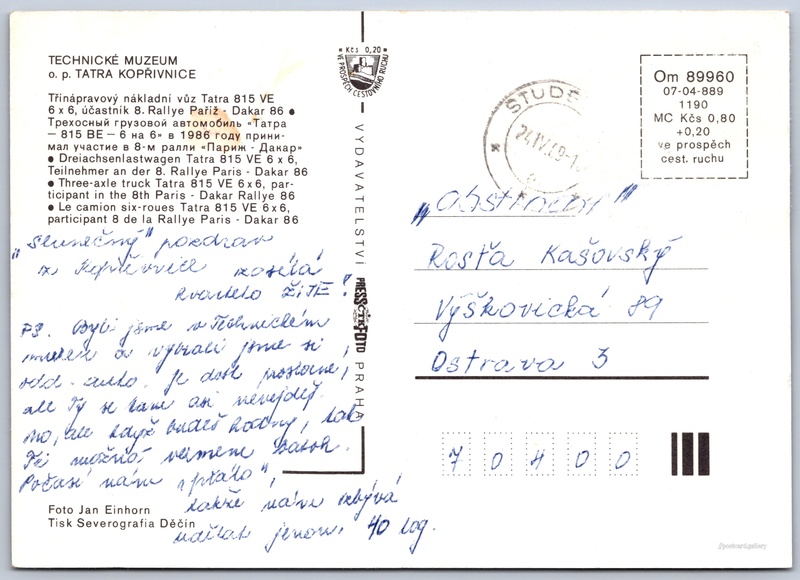 TECHNICKÉ MUZEUM
o. p. TATRA KOPŘIVNICE
Třínápravový nákladní vůz Tatra 815 VE
6 x 6, účastník 8. Rallye Paříž - Dakar 86 ●
Трехосный грузовой автомобиль «Татра
— 815 BE — 6 на 6» в 1986 году прини-
мал участие в 8-м ралли «Париж - Дакар»
● Dreiachsenlastwagen Tatra 815 VE 6 x 6,
Teilnehmer an der 8. Rallye Paris - Dakar 86
● Three-axle truck Tatra 815 VE 6 x 6, par-
ticipant in the 8th Paris - Dakar Rallye 86
● Le camion six-roues Tatra 815 VE 6x6,
participant 8 de la Rallye Paris - Dakar 86
„Slunečný" pozdrav
z Kopřivnice zasílá
kvarteto ŽITE!
PS. Byli jsme v Technickém
muzeu a vybrali jsme si
auto. Je dost
ale Ty se tam asi nevejdeš.
No, ale když budeš hodný, tak
Tě možná vezmeme
Počasí nám
takže nám zbývá
udělat jenom 40 log.
Foto Jan Einhorn
Tisk Severografia Děčín
Kčs 0,20
VE PROSPĚCH CESTOVNÍHO RUCHU
VYDAVATELSTVÍ PRESSFOTO PRAHA
ČTK
STUD
24.IV.89-1
Om 89960
07-04-889
1190
MC Kčs 0,80
+0,20
ve prospěch
cest. ruchu
Rosťa Kašovský
Výškovická 89
Ostrava 3
70400
//postcard.gallery